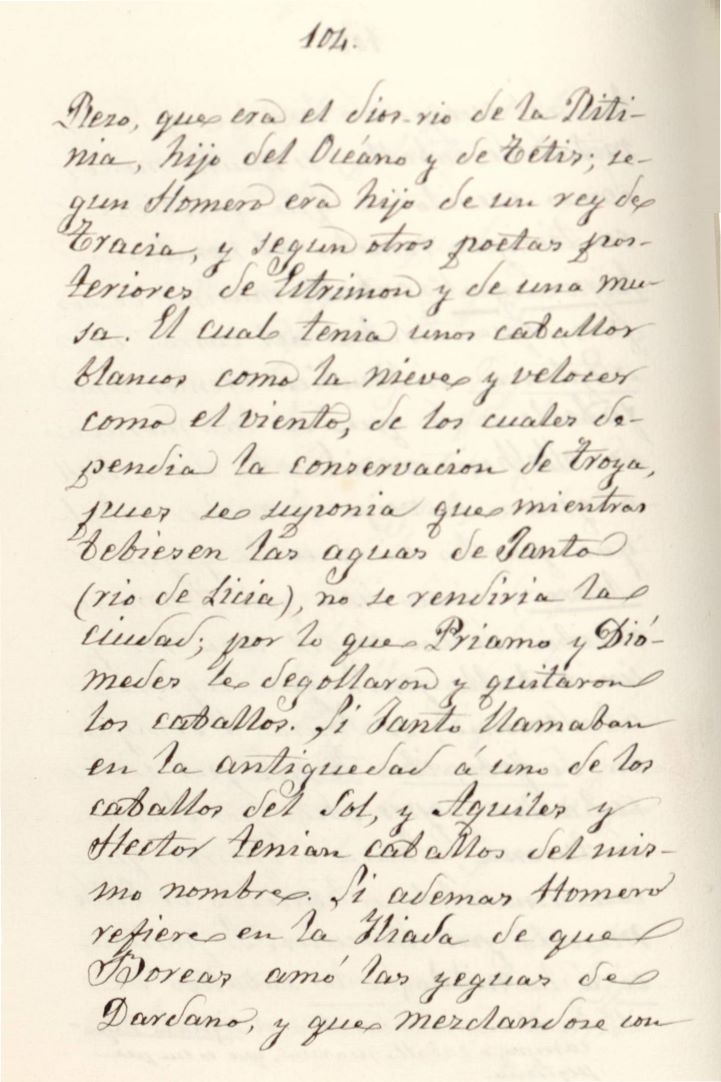 104.
Rezo, que era el dios-rio de la Biti-
nia, hijo del Océano y de Tétis; se-
gun Homero era hijo de un rey de
Tracia, y segun otros poetas pos-
teriores de Estrimon y de una mu-
sa. El cual tenia unos caballos
blancos como la nieve y veloces
como el viento, de los cuales de-
pendia la conservacion de Troya,
pues se suponia que mientras
bebiesen las aguas de Janto
(rio de Licia), no se rendiria la
ciudad; por lo que Priamo y Dió-
medes le degollaron y quitaron
los caballos. Si Janto llamaban
en la antiguedad á uno de los
caballos del Sol, y Aquiles y
Hector tenian caballos del mis-
mo nombre. Si ademas Homero
refiere en la Iliada de que
Boreas amó las yeguas de
Dardano, y que mezclandose con